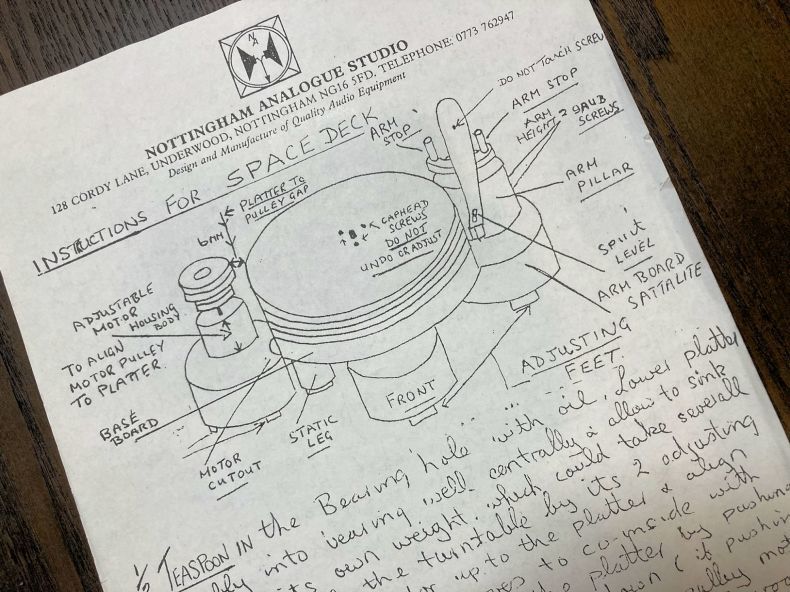 NA
NOTTINGHAM ANALOGUE STUDIO
128 CORDY LANE, UNDERWOOD, NOTTINGHAM NG16 5FD. TELEPHONE: 0773 762947
Design and Manufacture of Quality Audio Equipment
INSTUCTIONS FOR SPACE DECK
PLATTER TO
PULLEY GAP
6MM
ARM
STOP
DO NOT TOUCH SCREW
ARM STOP
ARM
HEIGHT 2 GRUB
SCREWS
ARM
PILLAR
CAPHEAD
SCREWS
DO NOT
UNDO OR ADJUST
SPIRIT
LEVEL
ARM BOARD
SATTALITE
ADJUSTABLE
MOTOR HOUSING
BODY
TO ALIGN
MOTOR PULLEY
TO PLATTER.
BASE
BOARD
MOTOR
CUTOUT
STATIC
LEG
FRONT
ADJUSTING
FEET.
½ TEASPOON IN the Bearing hole with oil, Lower platter
into bearing well centrally & allow to sink
its own weight, which could take severall
the turntable by its 2 adjusting
up to the platter & align
to co-inside with
the platter by pushing
down (if pushing
pulley